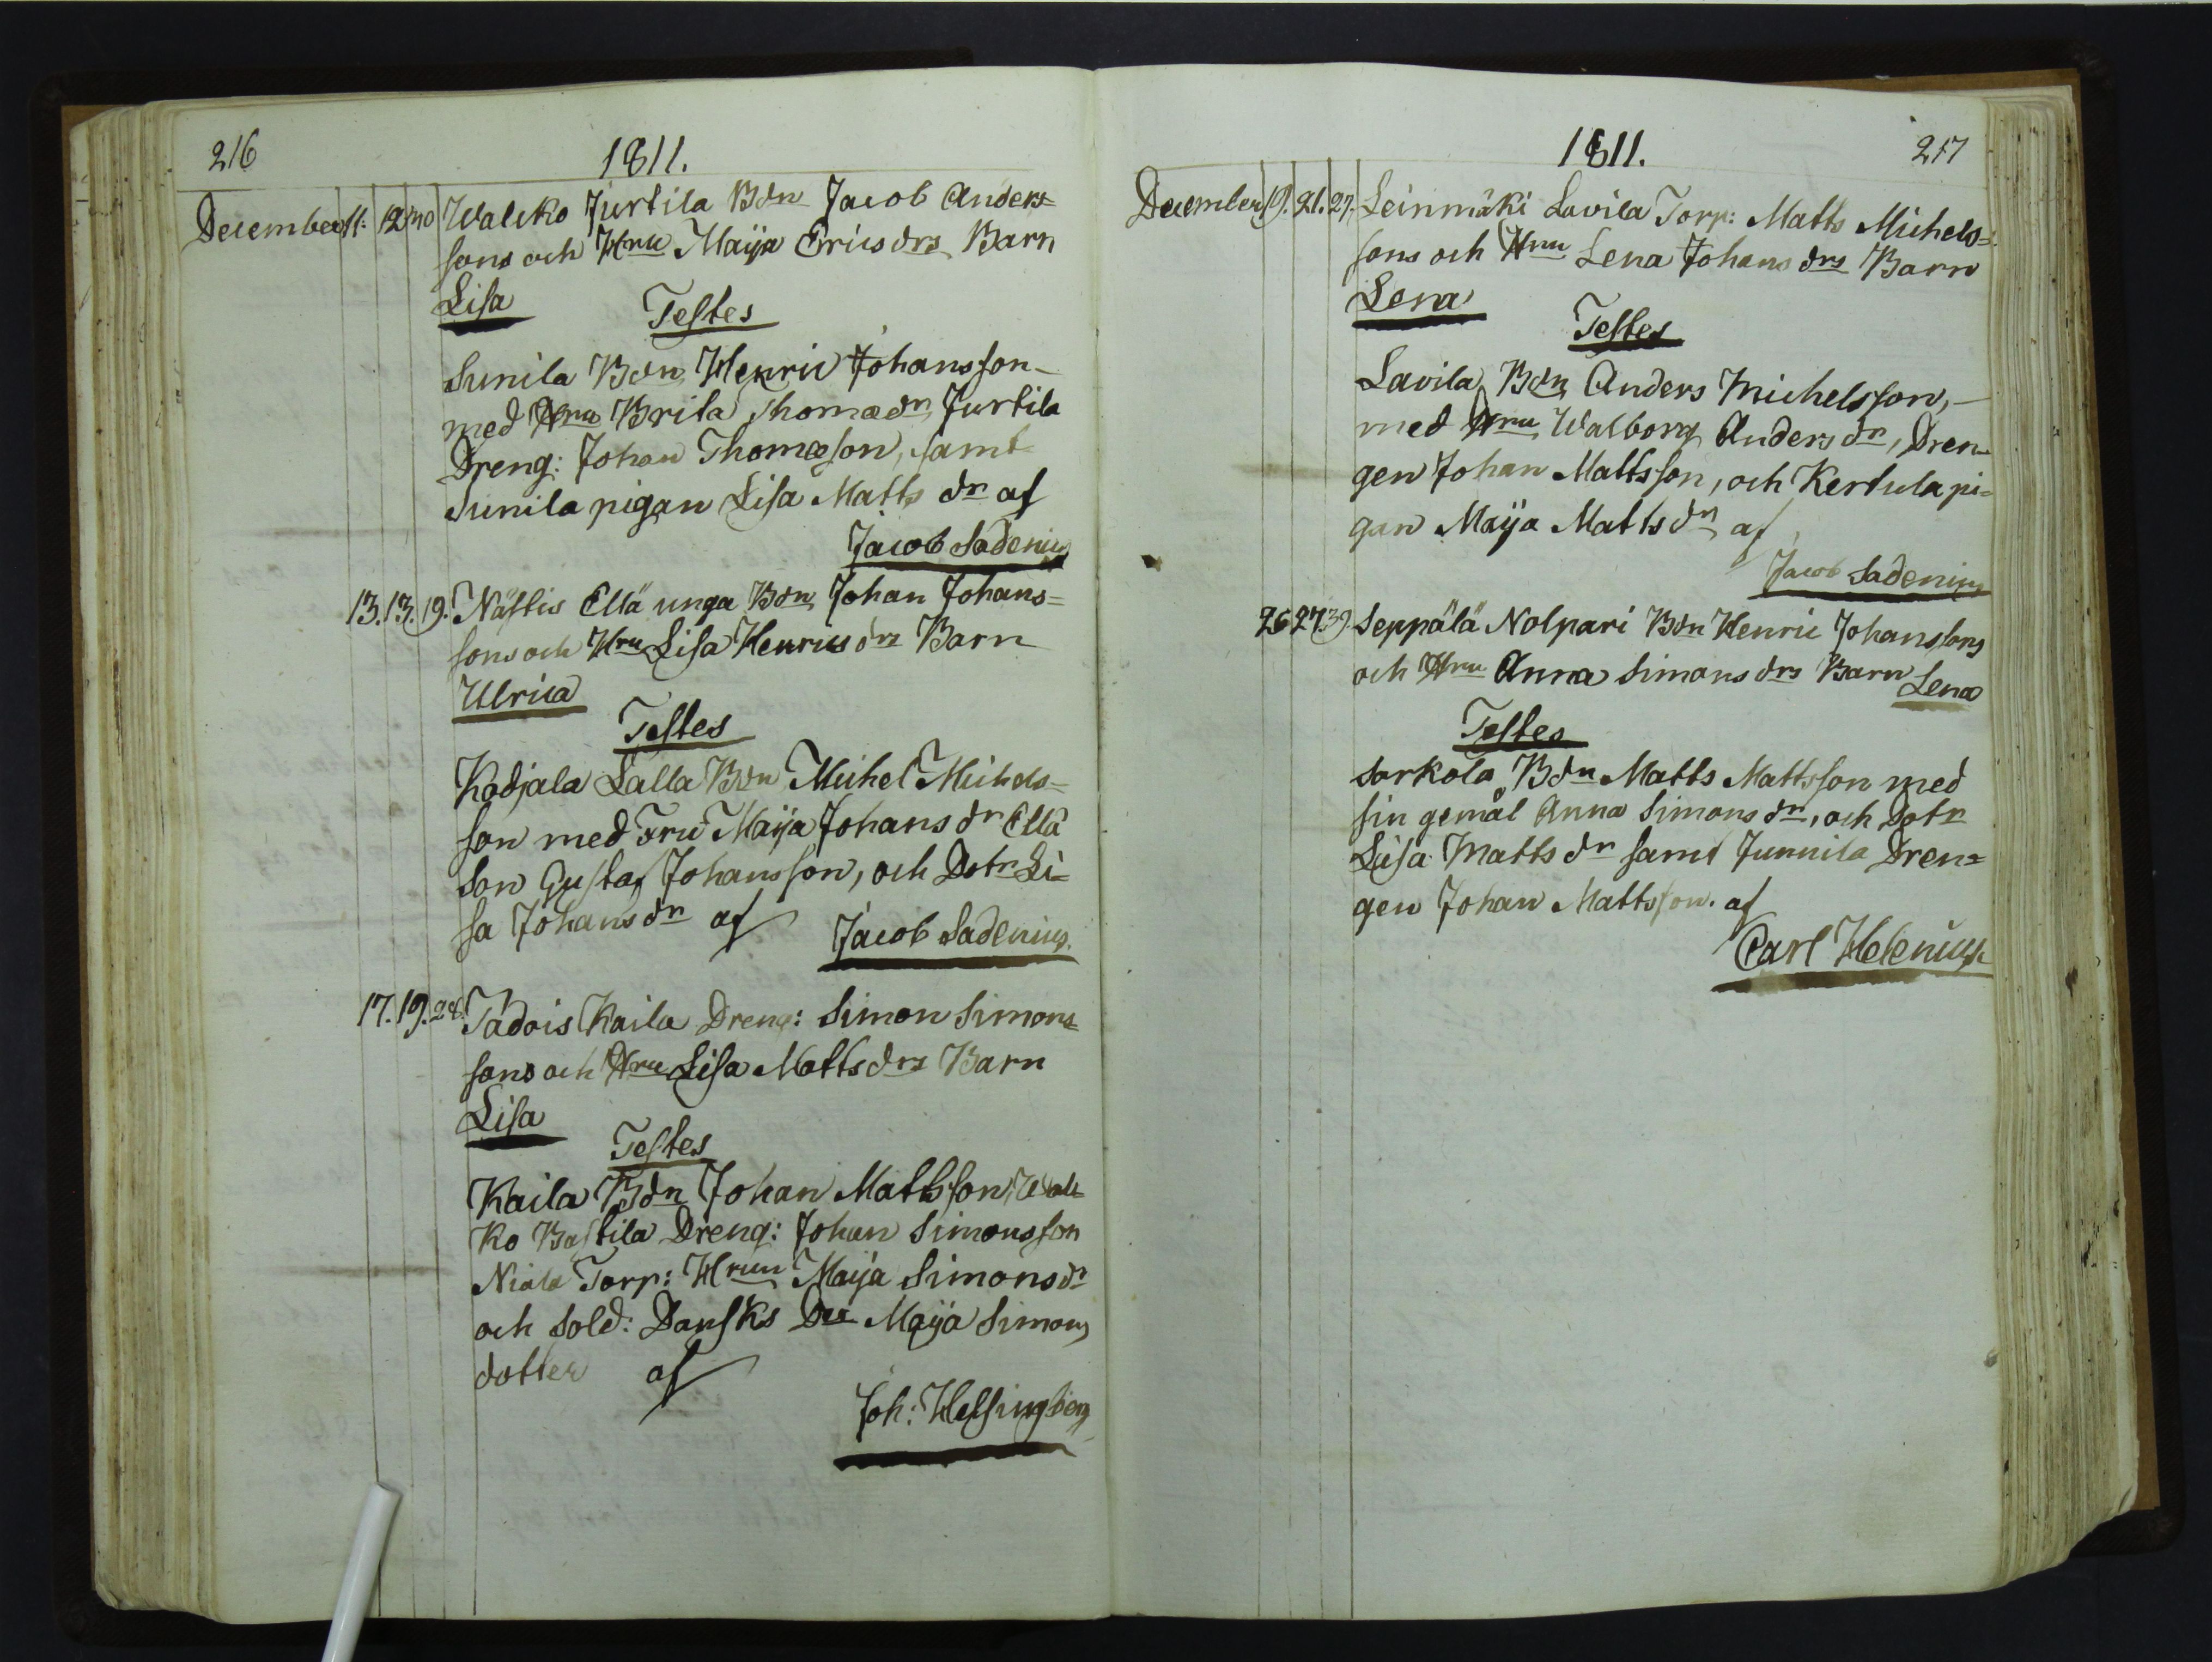 216
1811.
December 11. 12. 40 Walcko Jurtila Bdn Jacob Anders=
sons och Hru Maija Ericsdrs Barn
Lisa
Testes
Sunila Bdn Henric Johansson
med Hru Brita Thomædr, Jurtila
Dreng: Johan Thomæson, samt
Sunila pigan Lisa Matts dr af
Jacob Sadenius
13. 13. 19. Nästis Ellä unga Bdn Johan Johans=
sons och Hru Lisa Henricsdrs Barn
Ulrica
Testes
Kodjala Lalla Bdn Michel Michels=
son med Fru Maija Johans dr Ellä
Son Gustaf Johansson, och Dotr Li=
sa Johansdr af
Jacob Sadenius.
17. 19. 28. Tadois Kaila Dreng: Simon Simons=
sons och Hru Lisa Mattsdrs Barn
Lisa
Testes
Kaila Bdn Johan Mattsson, Wal=
ko Bastila Dreng: Johan Simonsson
Niala Torp: Hrun Maija Simonsdr
och Sold: Dansks Maija Simons
dotter af
Joh: Helsingberg
1811.
217
December 19. 21. 27. Leinmäki Lavila Torp: Matts Michels=
sons och Hru Lena Johans drs Barn
Lena
Testes
Lavila Bdn Anders Michelsson,
med Hru Walborg Anders dr, Dren=
gen Johan Mattsson, och Kertula pi=
gan Maija Mattsdr af
Jacob Sadenius
26 27 39. Seppälä Nolpari Bdn Henric Johanssons
och Hru Anna Simons drs Barn Lena
Testes
Sorkola Bdn Matts Mattsson med
sin gemål Anna Simons dr, och Dotr
Lisa Matts dr samt Junnila Dren=
gen Johan Mattsson. af
Carl Helenius.